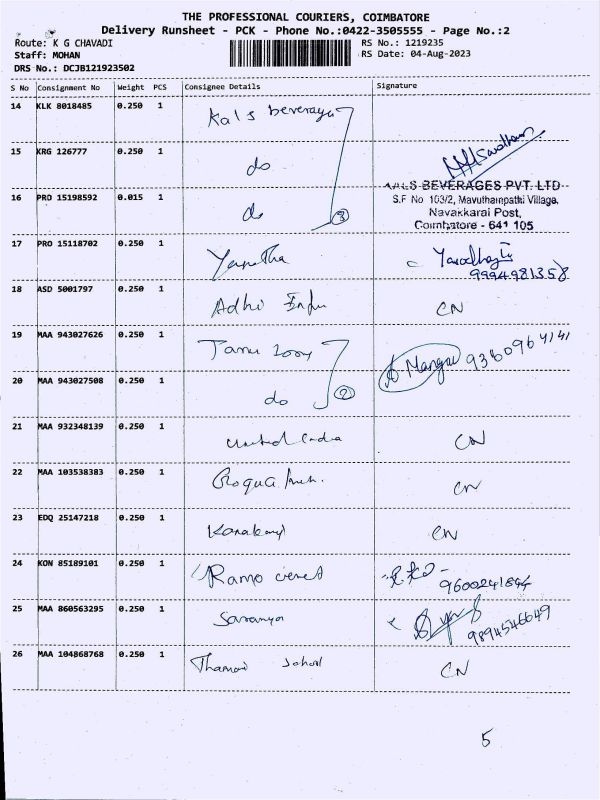 THE PROFESSIONAL COURIERS, COIMBATORE
Delivery Runsheet - PCK - Phone No.:0422-3505555 - Page No.:2
Route: K G CHAVADI RS No.: 1219235
Staff: MOHAN RS Date: 04-Aug-2023
DRS No.: DCJB121923502
S No Consignment No Weight PCS Consignee Details Signature
14 KLK 8018485 0.250 1 Kals beverages
15 KRG 126777 0.250 1 do
KALS BEVERAGES PVT. LTD
16 PRO 15198592 0.015 1 do 3 S.F No 103/2, Mavuthampathi Village,
Navakkarai Post,
Coimbatore - 641 105
17 PRO 15118702 0.250 1
9994981358
18 ASD 5001797 0.250 1 Adhi CN
19 MAA 943027626 0.250 1 9360964141
20 MAA 943027508 0.250 1 do 2
21 MAA 932348139 0.250 1 United India CN
22 MAA 103538383 0.250 1 CN
23 EDQ 25147218 0.250 1 CN
24 KON 85189101 0.250 1
9600241844
25 MAA 860563295 0.250 1 Saranya 9894546649
26 MAA 104868768 0.250 1 CN
5